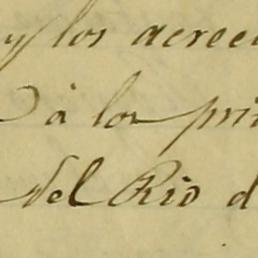 y los acree
à los pri
del Rio d